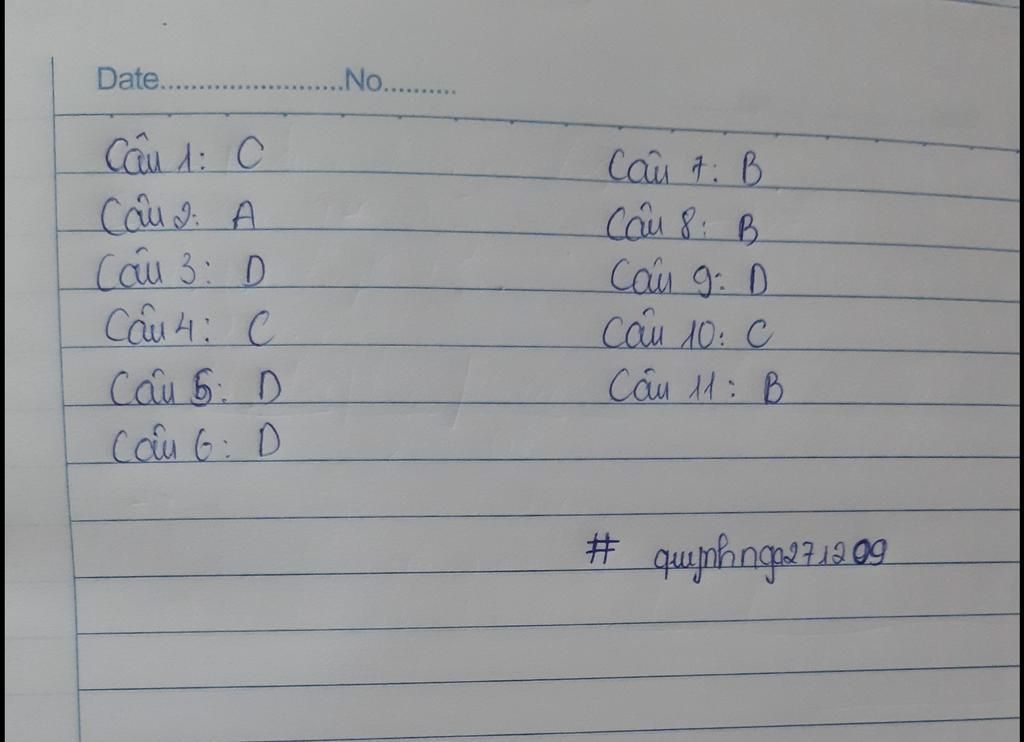 Date......................No..........
Câu 1: C
Câu 2: A
Câu 3: D
Câu 4: C
Câu 5: D
Câu 6: D
Câu 7: B
Câu 8: B
Câu 9: D
Câu 10: C
Câu 11: B
# quynhnga271209